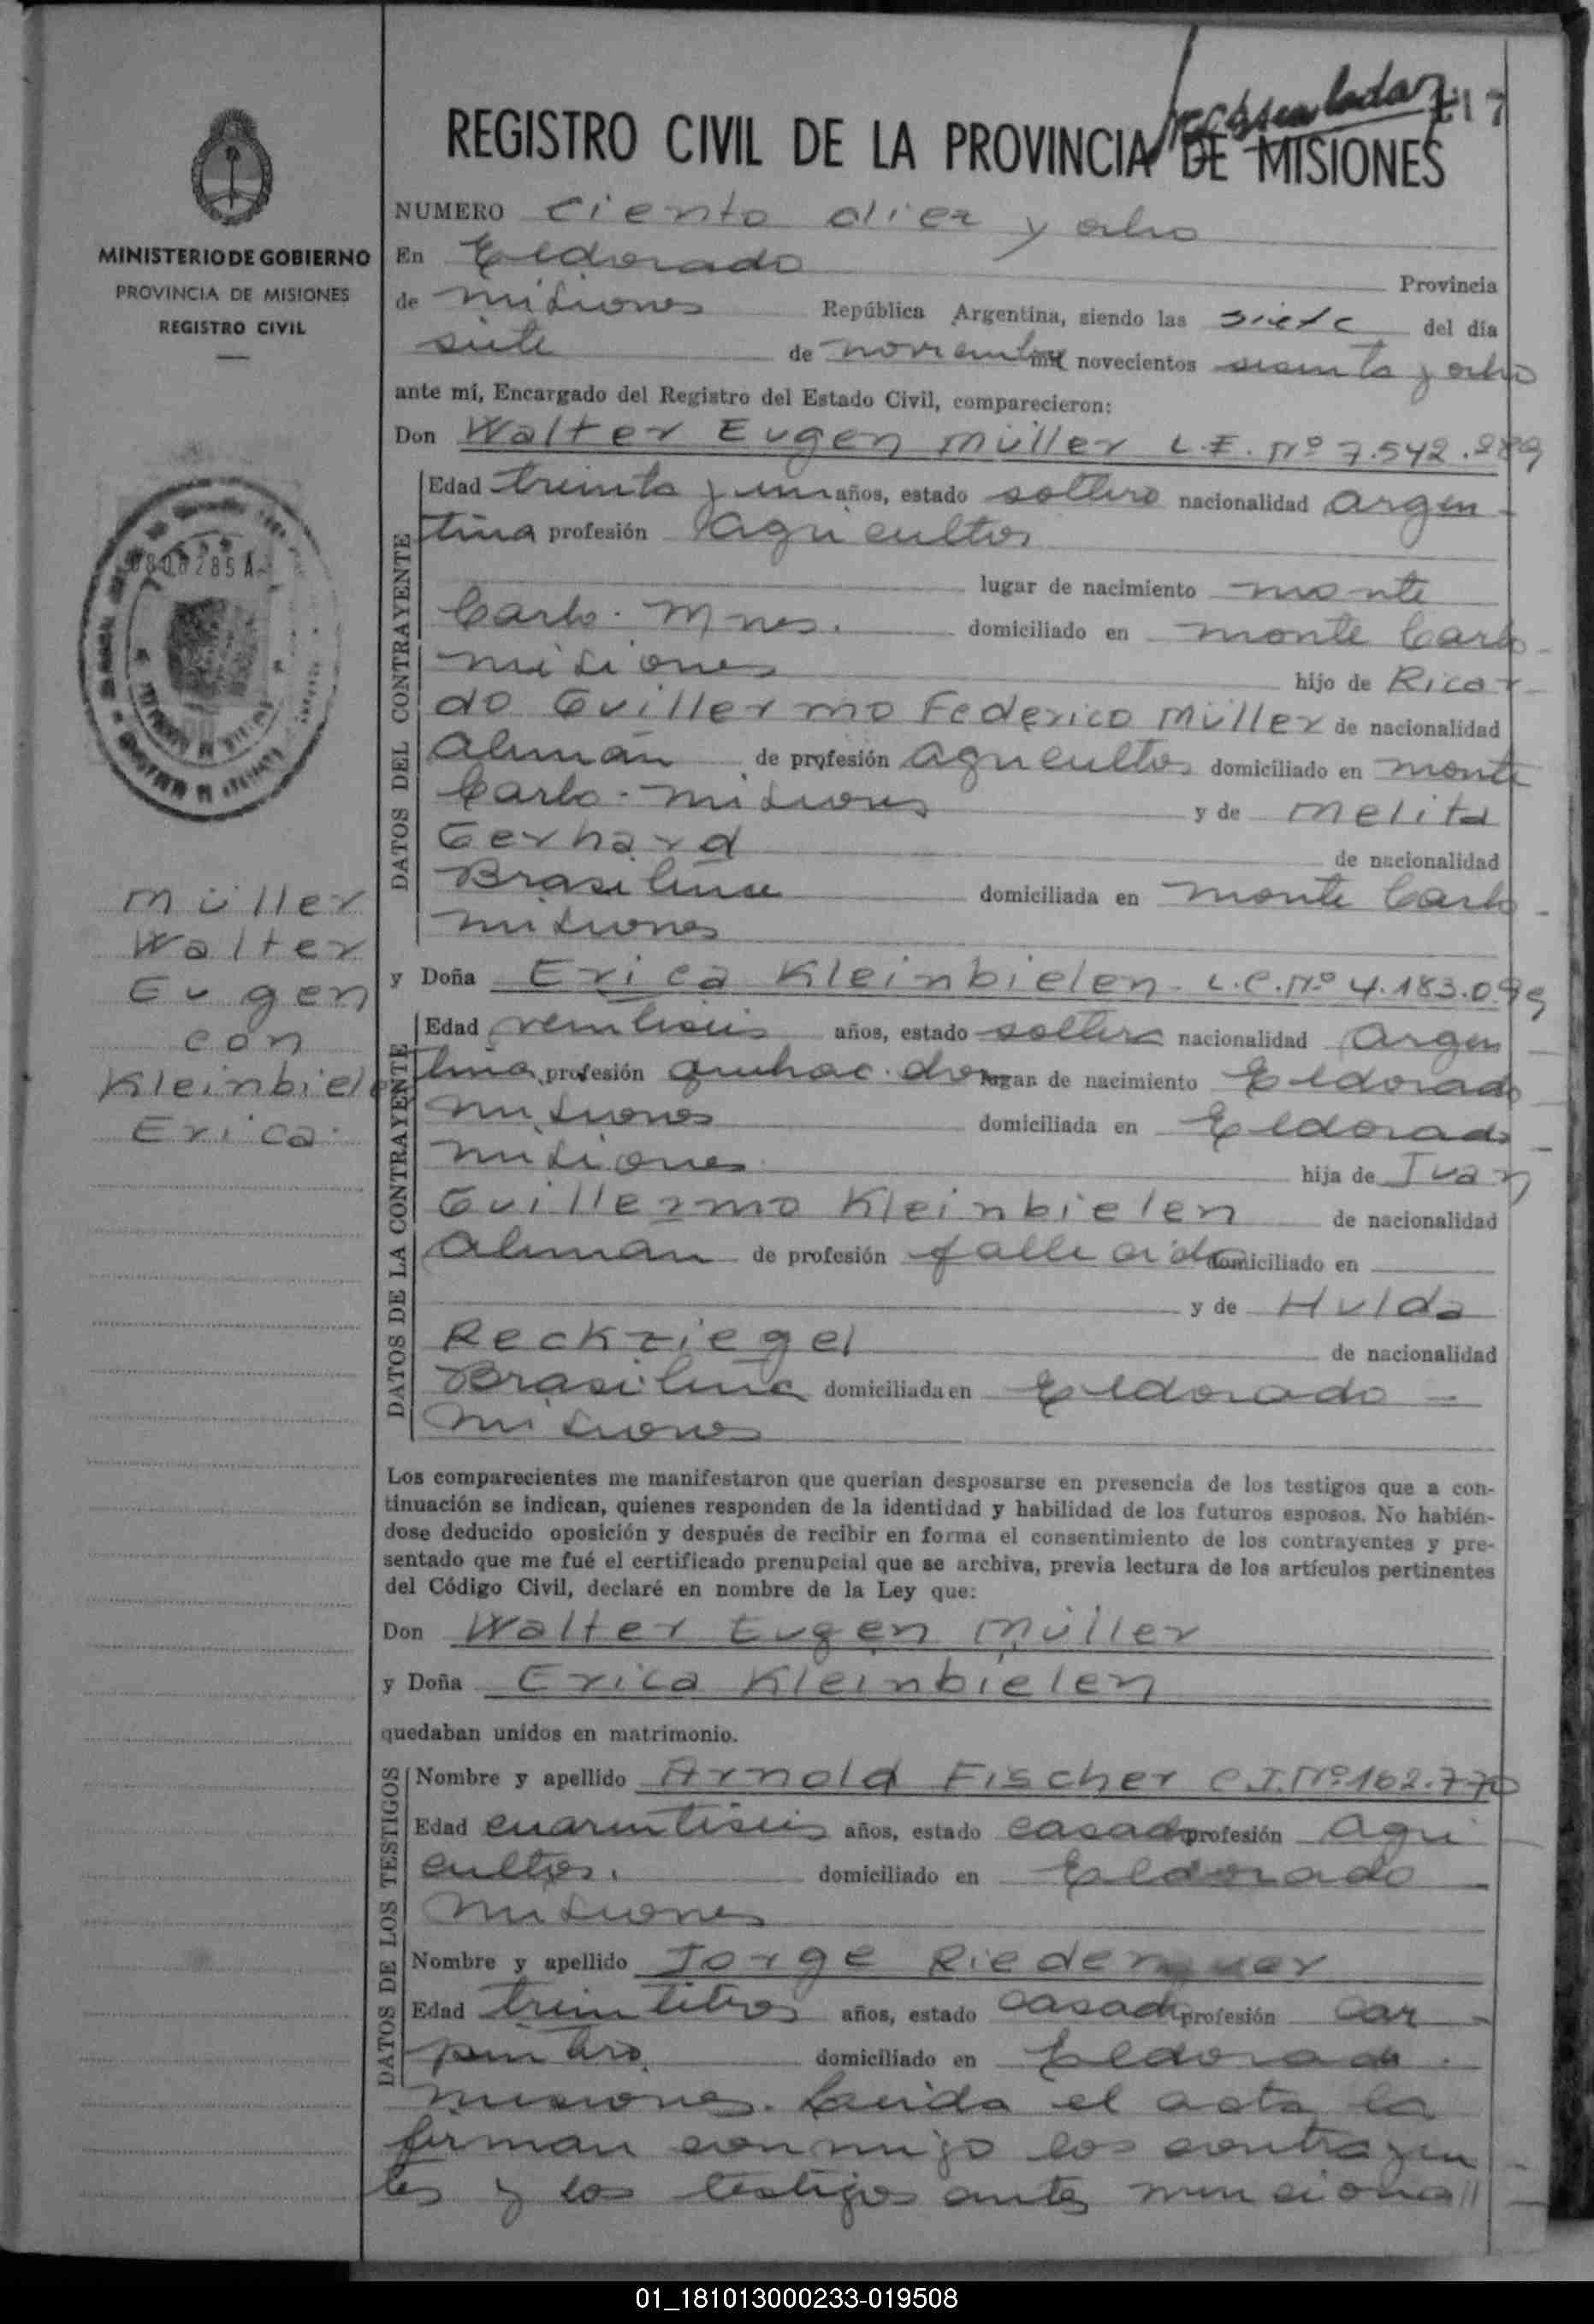 117
REGISTRO CIVIL DE LA PROVINCIA DE MISIONES
MINISTERIO DE GOBIERNO
PROVINCIA DE MISIONES
REGISTRO CIVIL
0800285 A
Müller
Walter
Eugen
con
Kleinbiele
Erica.
NUMERO ciento diez y ocho
En Eldorado Provincia
de misiones República Argentina, siendo las siete del día
siete de noviembre mil novecientos sesenta y ocho
ante mí, Encargado del Registro del Estado Civil, comparecieron:
Don Walter Eugen Müller L.E. Nº 7.542.289
DATOS DEL CONTRAYENTE
Edad treinta y un años, estado soltero nacionalidad argen-
tina profesión agricultor
lugar de nacimiento monte
Carlo. Mnes. domiciliado en monte Carlo-
misiones hijo de Ricar-
do Guillermo Federico Müller de nacionalidad
Alemán de profesión agricultor domiciliado en monte
Carlo. misiones y de Melita
Gerhard de nacionalidad
Brasileña domiciliada en monte Carlo-
misiones
y Doña Erica Kleinbielen - L.C. Nº 4.183.099
DATOS DE LA CONTRAYENTE
Edad veintiseis años, estado soltera nacionalidad Argen-
tina profesión quehac. dro lugar de nacimiento Eldorado
misiones domiciliada en Eldorado-
misiones hija de Ivan
Guillermo Kleinbielen de nacionalidad
Aleman de profesión fallecido domiciliado en
y de Hulda
Reckziegel de nacionalidad
Brasileña domiciliada en Eldorado -
misiones
Los comparecientes me manifestaron que querían desposarse en presencia de los testigos que a con-
tinuación se indican, quienes responden de la identidad y habilidad de los futuros esposos. No habién-
dose deducido oposición y después de recibir en forma el consentimiento de los contrayentes y pre-
sentado que me fué el certificado prenupcial que se archiva, previa lectura de los artículos pertinentes
del Código Civil, declaré en nombre de la Ley que:
Don Walter Eugen Müller
y Doña Erica Kleinbielen
quedaban unidos en matrimonio.
DATOS DE LOS TESTIGOS
Nombre y apellido Arnold Fischer C.I. Nº 162.770
Edad cuarentiseis años, estado casado profesión agri-
cultor. domiciliado en Eldorado
misiones
Nombre y apellido Jorge
Edad treintitres años, estado casado profesión car-
pintero domiciliado en Eldorado.
misiones. Leida el acta la
firman conmigo los contrayen-
tes y los testigos antes menciona//
01_181013000233-019508